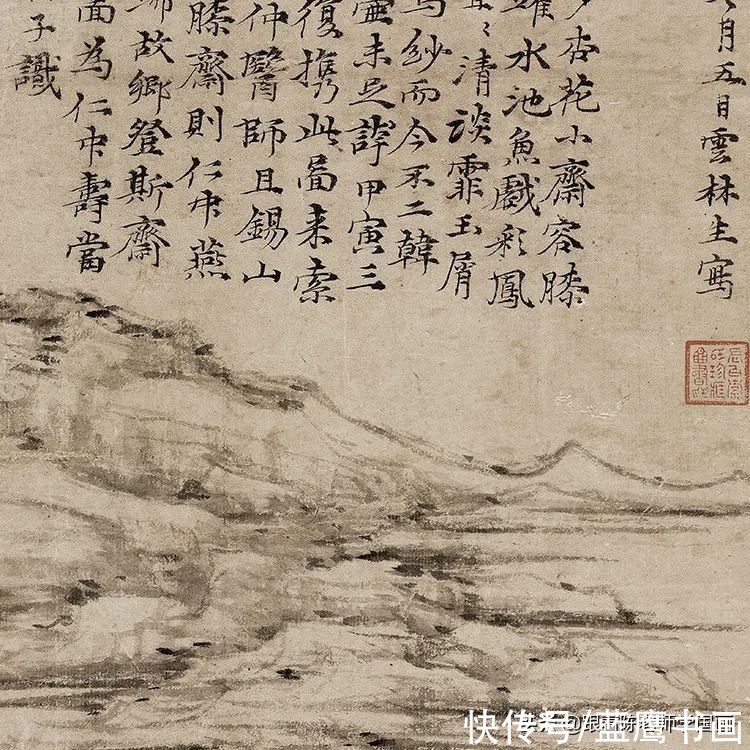 月五日雲林生寫
杏花小齋容膝
躍水池魚戲彩鳳
〻清談霏玉屑
烏紗而今不二韓
壺未足誇甲寅三
復携此啚来索
仲醫師且錫山
膝齋則仁中燕
歸故鄉登斯齋
啚為仁中壽當
子識
快传号/蓝鹰书画